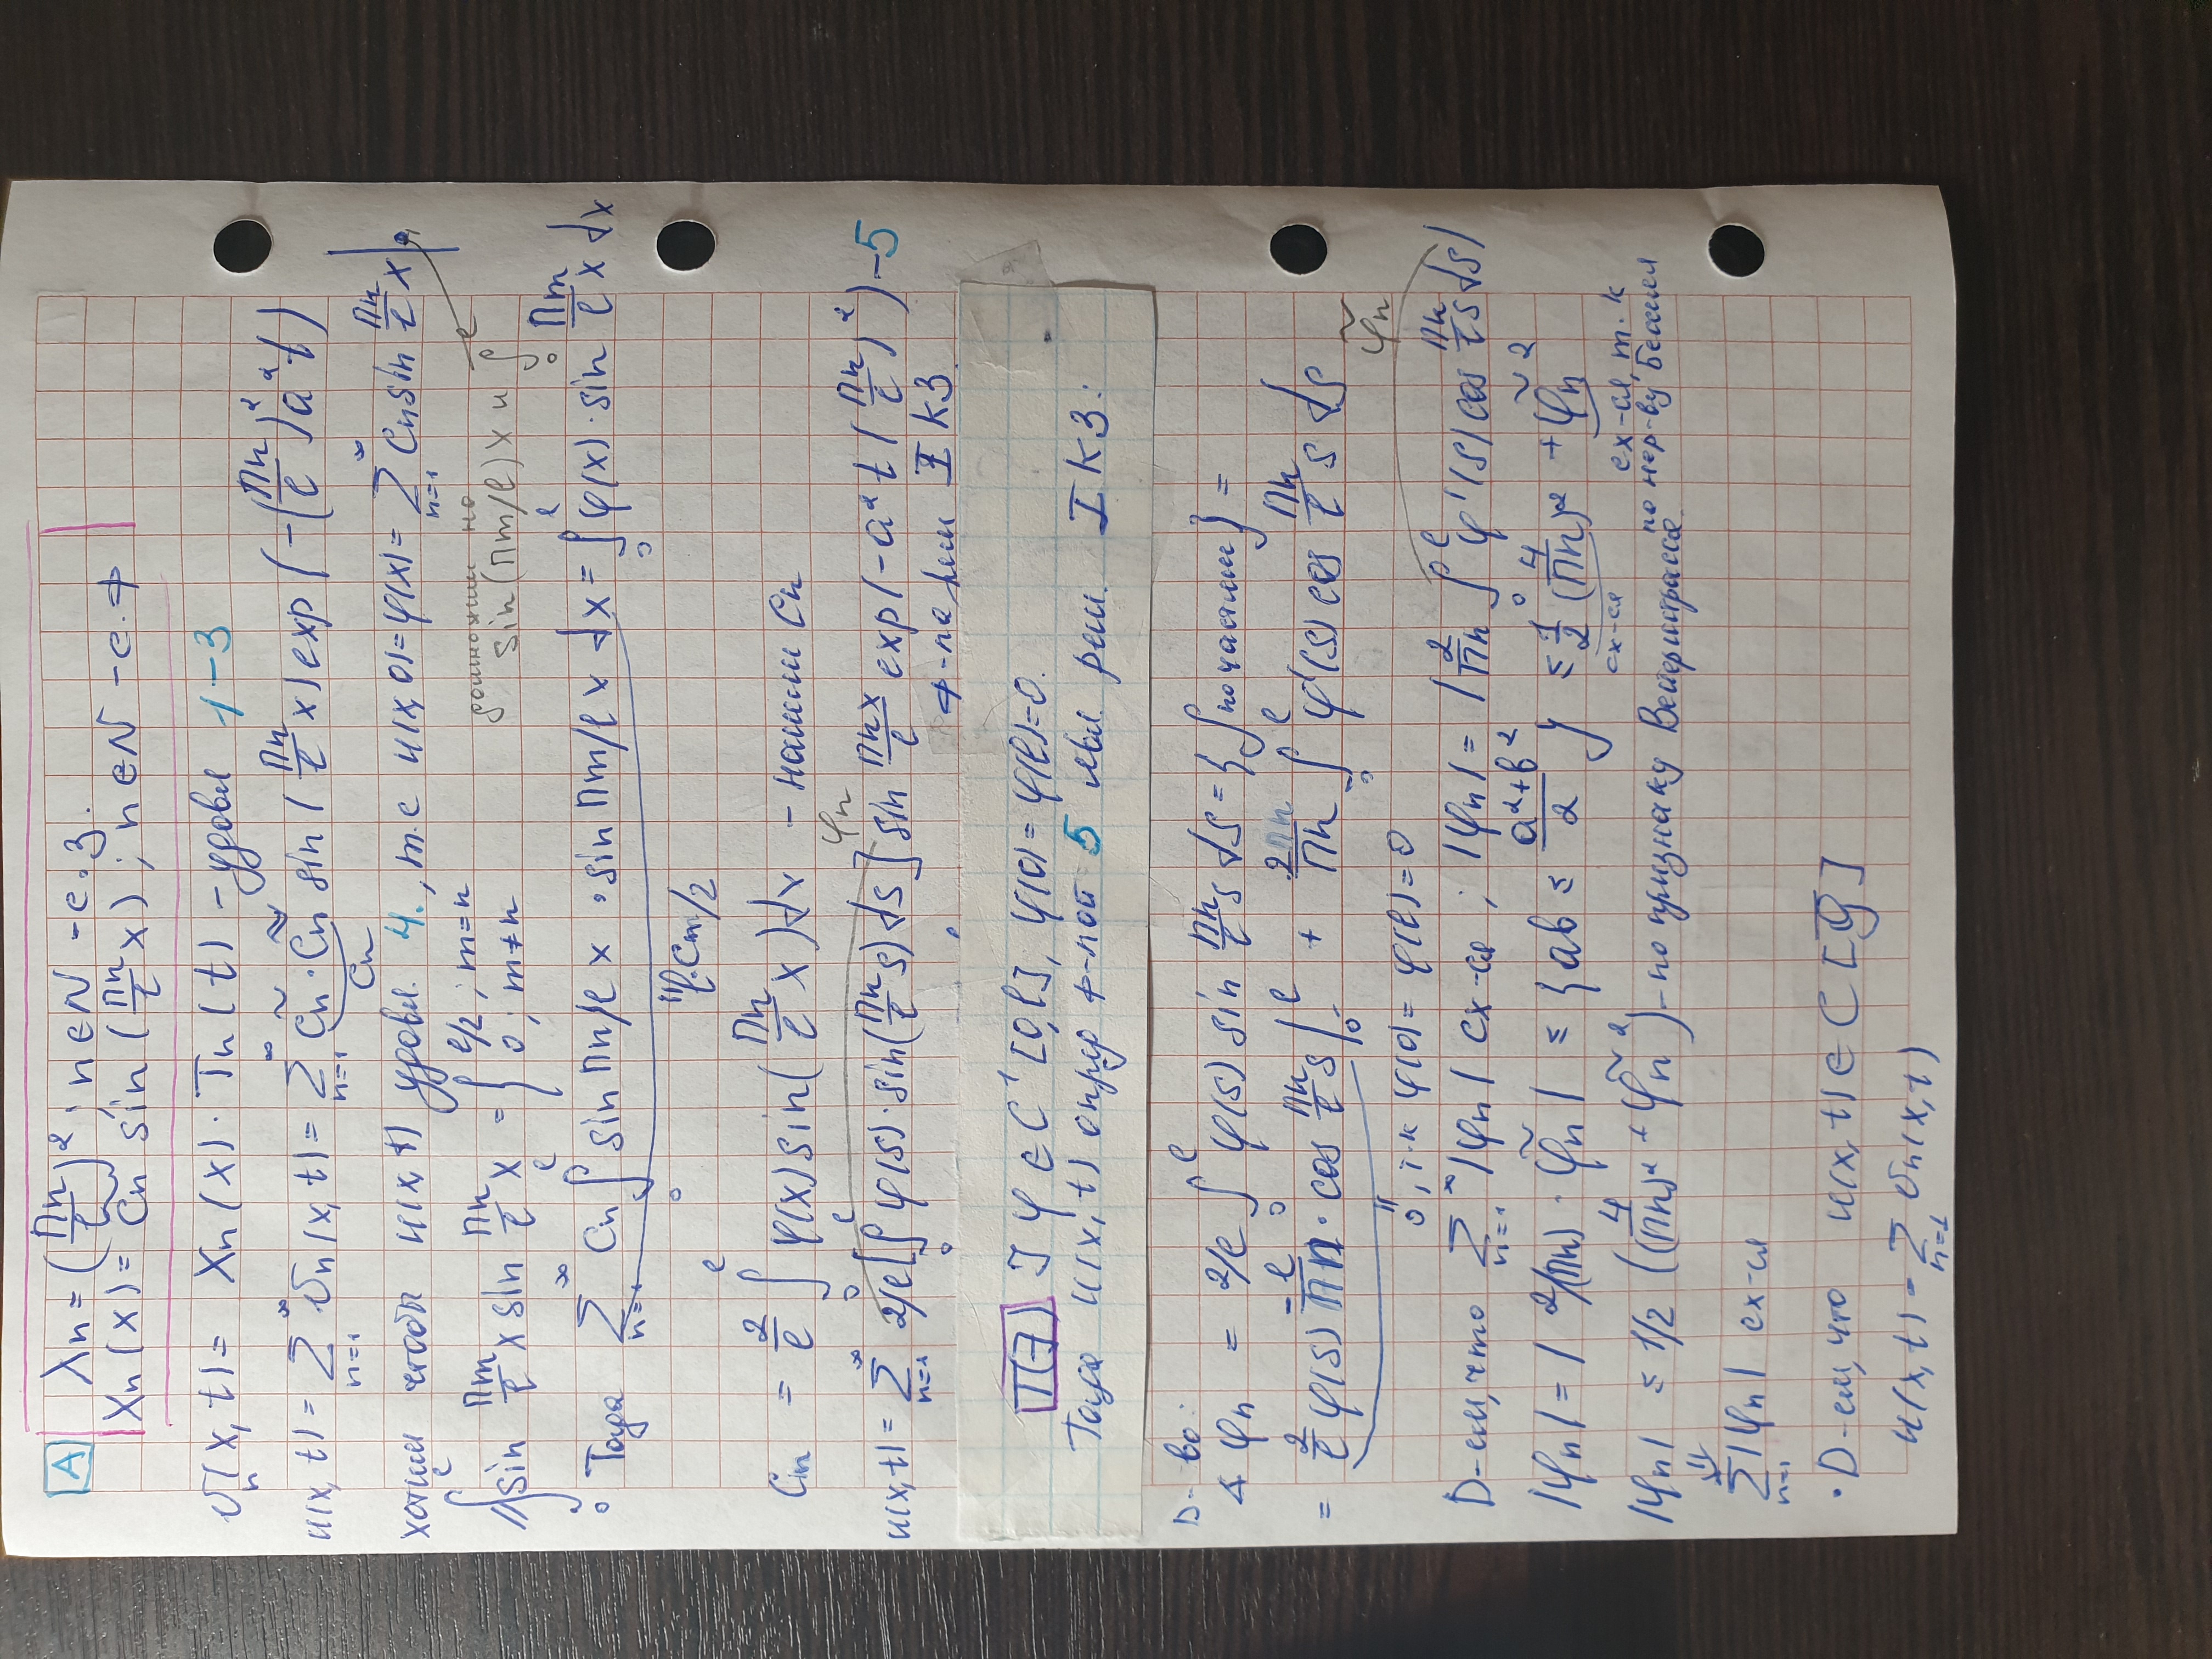 A λn = (πn/l)²; n∈N - с.з.
Xn(x) = Cn sin(πn/l x); n∈N - с.ф
υn(x,t) = Xn(x)·Tn(t) - удовл 1-3
u(x,t) = ∑n=1^∞ υn(x,t) = ∑n=1^∞ C̃n·C̃̃n sin(πn/l x) exp(-(πn/l)²a²t)
Cn
хотим чтобы u(x,t) удовл. 4., т.е u(x,0) = φ(x) = ∑n=1^∞ Cn sin πn/l x |·,
домножим на
sin(πm/l)x и ∫0^l
∫0^l sin πm/l x sin πn/l x = { l/2; m=n
0; m≠n
Тогда ∑n=1^∞ Cn ∫0^l sin πn/l x · sin πm/l x dx = ∫0^l φ(x)·sin πm/l x dx
l·Cm/2
Cm = 2/l ∫0^l φ(x) sin(πn/l x)dx - нашли Cn
φn
u(x,t) = ∑n=1^∞ 2/l [∫0^l φ(s)·sin(πn/l s)ds] sin πnx/l exp(-a²t(πn/l)²) -5
ф-ла реш I КЗ
Т(7) ] φ∈C¹[0,l], φ(0)=φ(l)=0.
Тогда u(x,t) опред ф-лой 5 явл реш. I КЗ.
D-во:
Δ φn = 2/l ∫0^l φ(s) sin πn/l s ds = {∫ по частям} =
= 2/l φ(s) -l/πn · cos πn/l s |0^l + 2/πn ∫0^l φ'(s) cos πn/l s ds
0, т.к φ(0)=φ(l)=0
φ̃n
D-ем, что ∑n=1^∞ |φn| сх-ся; |φn| = |2/πn ∫0^l φ'(s) cos πn/l s ds|
|φn| = |2/(πn)·φ̃n| ≤ {ab ≤ a²+b²/2} ≤ 1/2 (4/(πn)² + φ̃n²
сх-ся
сх-ся, т.к
по нер-ву Бесселя
|φn| ≤ 1/2 (4/(πn)² + φ̃n²) - по признаку Вейерштрасса
∑n=1^∞ |φn| сх-ся
• D-ем, что u(x,t) ∈ C[
u(x,t) = ∑n=1^∞ υn(x,t)